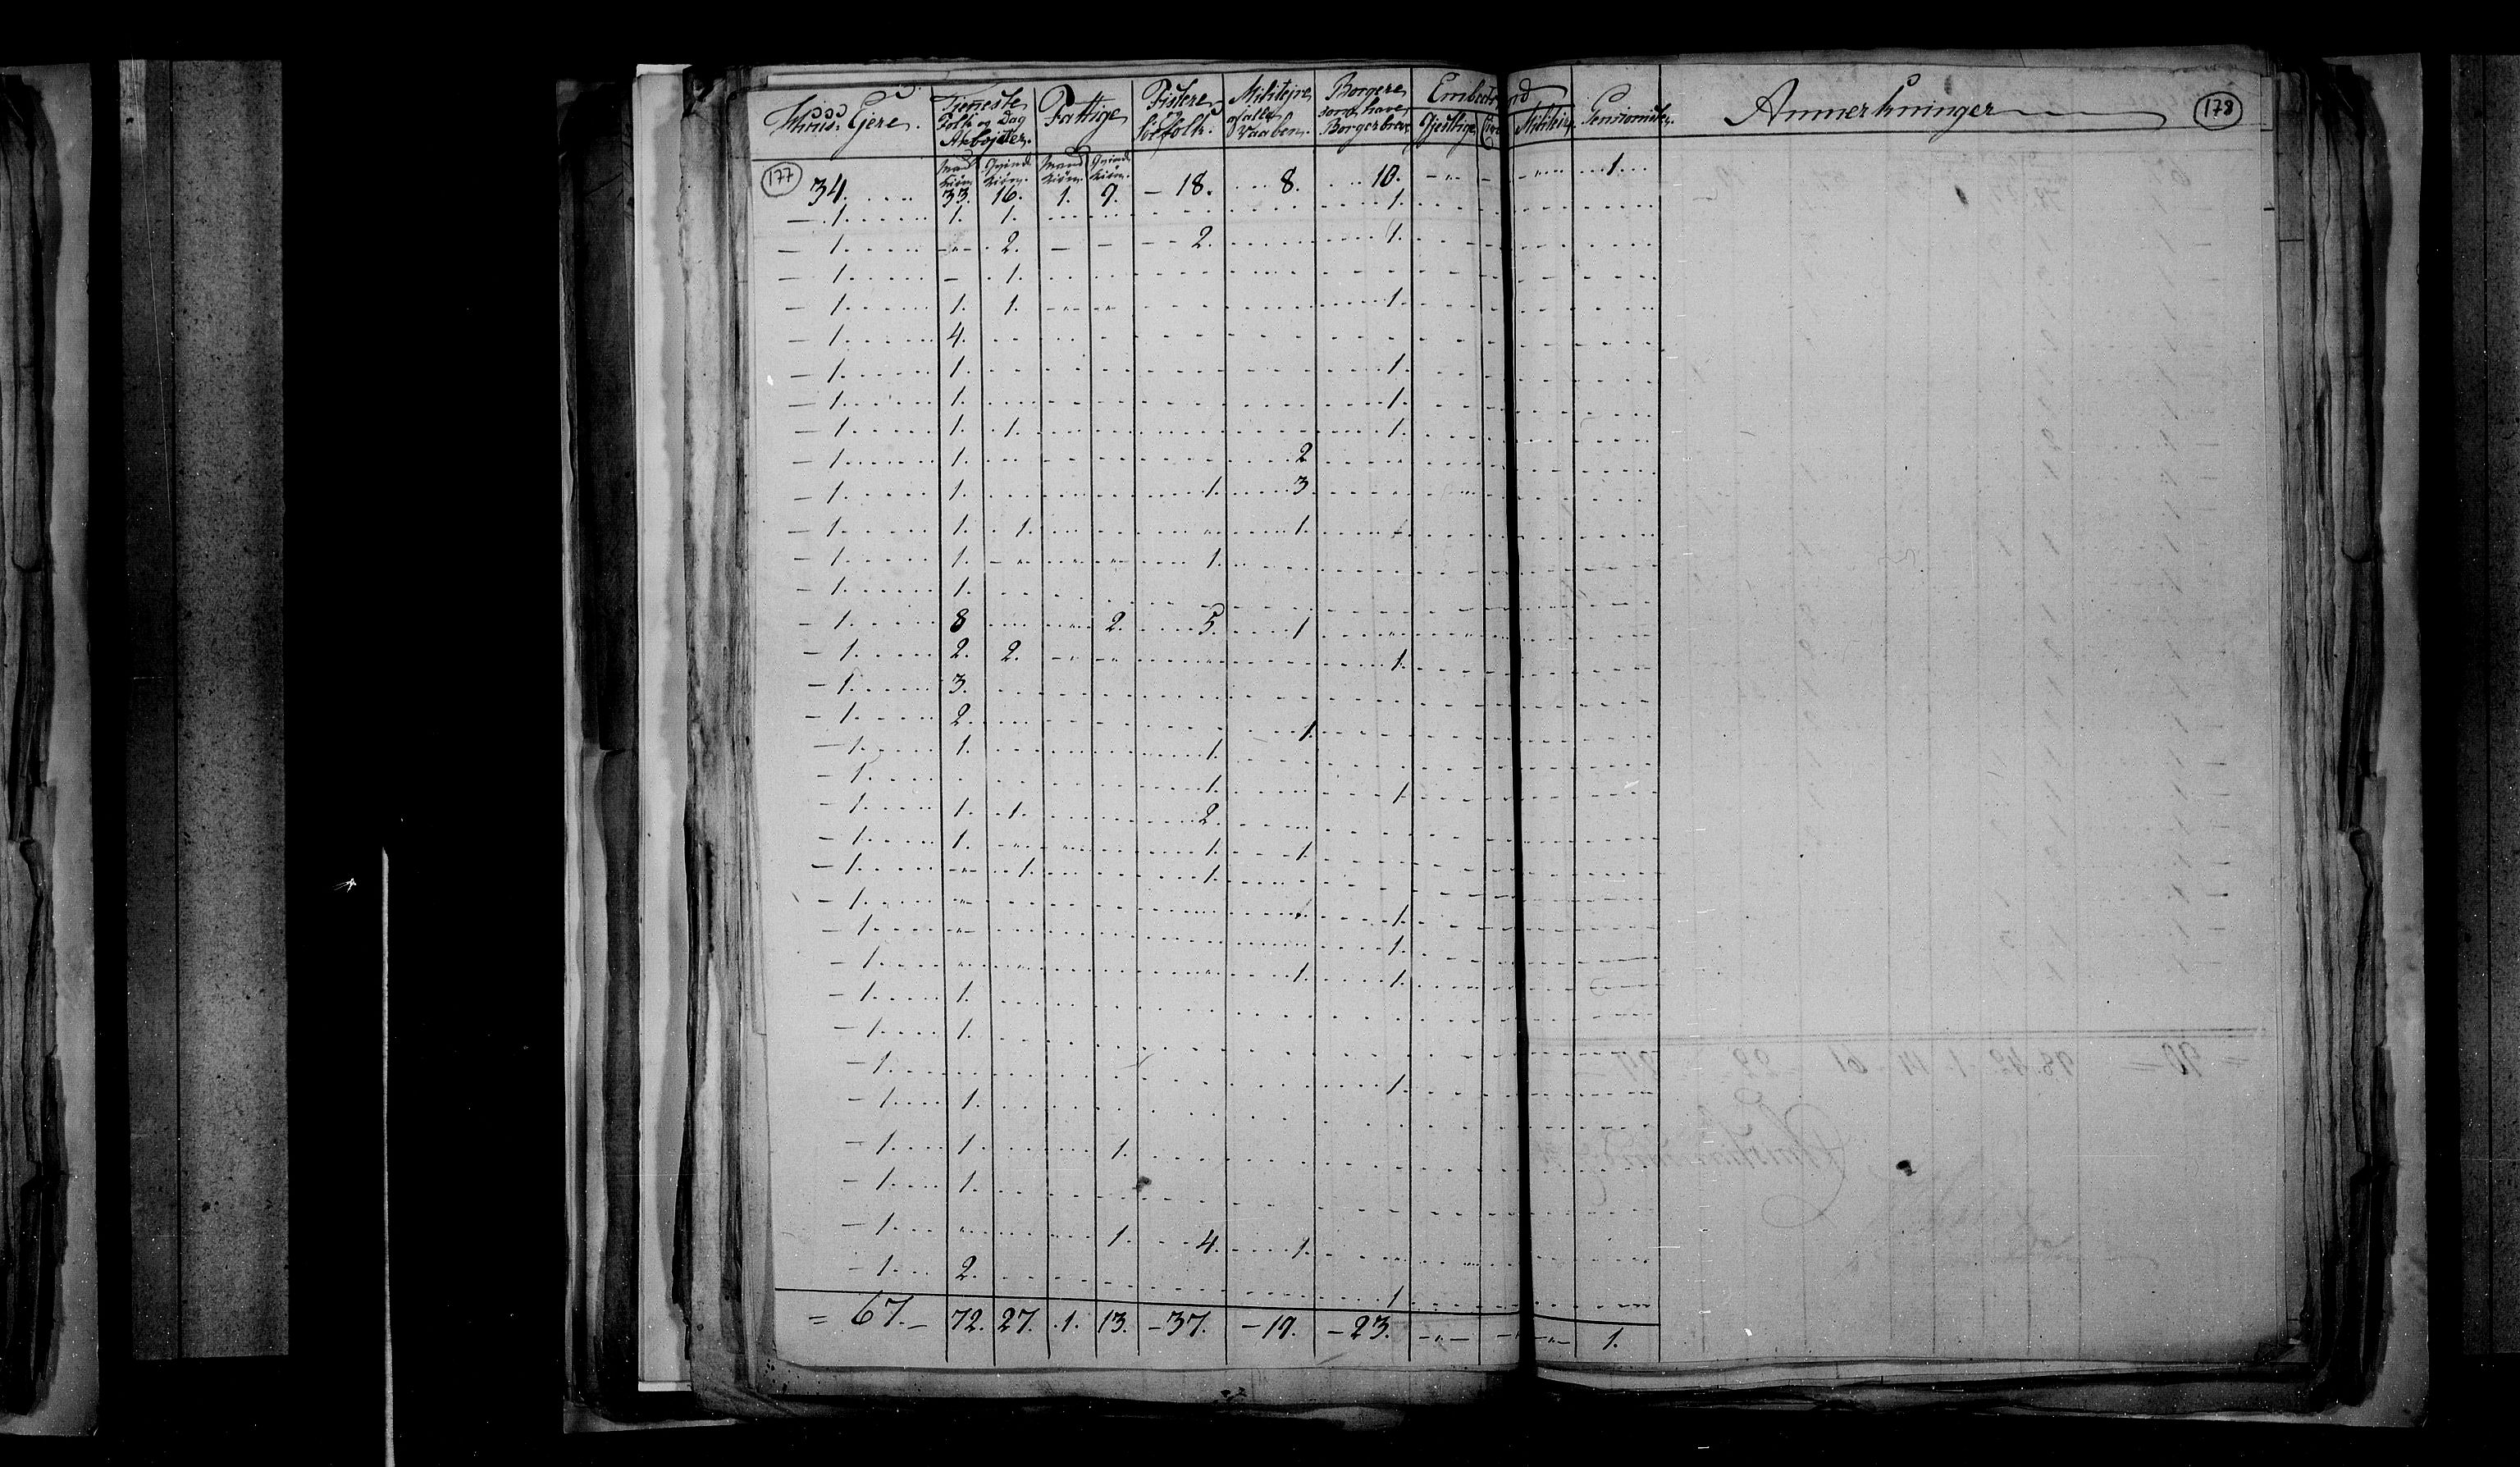 Huus-Ejere. Tjeneste Folk og Dag Arbejder. Fattige Fiskere og Søefolk. Militejre af alle Vaaben. Borgere som have Borgerbrev Embeds Gejstlige Militair Pensionister. Anmerkninger 178
177 Mand kiøn. Qvinde kiøn. Mand kiøn. Qvinde kiøn.
34. 33. 16. 1. 9. – 18. 8. 10. 1.
– 1. 1. 1. 1.
– 1. 2. – – 2. 1.
– 1. – 1.
– 1. 1. 1. 1.
– 1. 4.
– 1. 1. 1.
– 1. 1. 1.
– 1. 1. 1. 1.
– 1. 1. 2
– 1. 1. 1. 3
– 1. 1. 1. 1.
– 1. 1. 1.
– 1. 1.
– 1. 8 2. 5. 1
– 1. 2. 2. 1.
– 1. 3.
– 1. 2. 1.
– 1. 1. 1.
– 1. 1. 1.
– 1. 1. 1. 2.
– 1. 1. 1. 1.
– 1. 1. 1.
– 1. 1.
– 1. 1.
– 1. 1. 1.
– 1. 1.
– 1. 1.
– 1. 1.
– 1. 1.
– 1. 1. 1.
– 1. 1.
– 1. 1. 4. 1.
– 1. 2. 1
= 67. – 72. 27. 1. 13. – 37. – 19. – 23. 1.